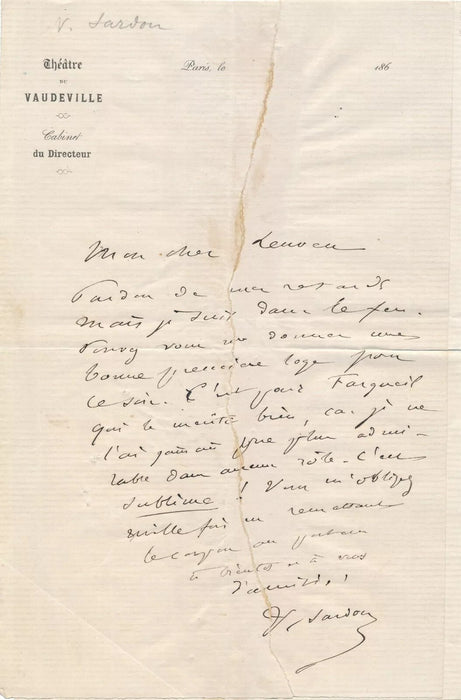 V. Sardou
Théâtre
DU
VAUDEVILLE
Cabinet
du Directeur
Paris, le 186
Mon cher Leuven
Pardon de mes retards
mais je suis dans le feu.
Pouvez vous me donner une
bonne première loge pour
ce soir. C'est pour Fargueil
qui le mérite bien, car je ne
l'ai jamais vue plus admi-
rable dans aucun rôle. C'est
sublime ! Vous m'obligez
mille fois en remettant
le coupon au porteur
à bientôt et à vous
d'amitié !
V. Sardou